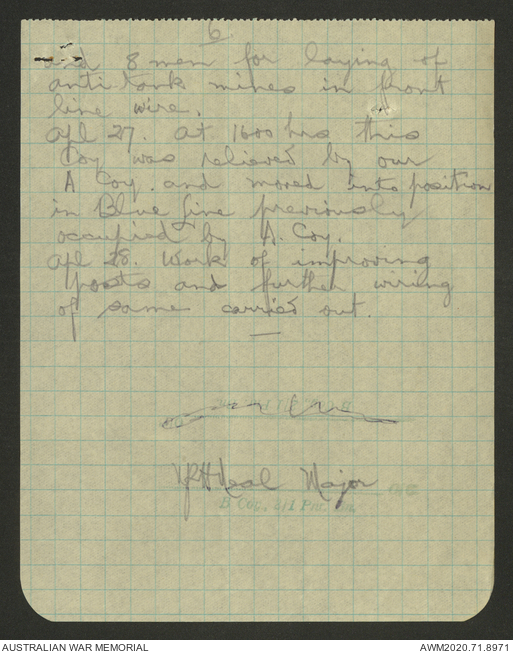 6
and 8 men for laying of
anti tank mines in front
line wire.
Apl 27. At 1600 hrs this
Coy was relieved by our
A Coy. and moved into position
in Blue Line previously
occupied by A. Coy.
Apl 28. Work of improving
posts and further wiring
of same carried out.
Neal Major
B Coy, 2/1
AUSTRALIAN WAR MEMORIAL
AWM2020.71.8971